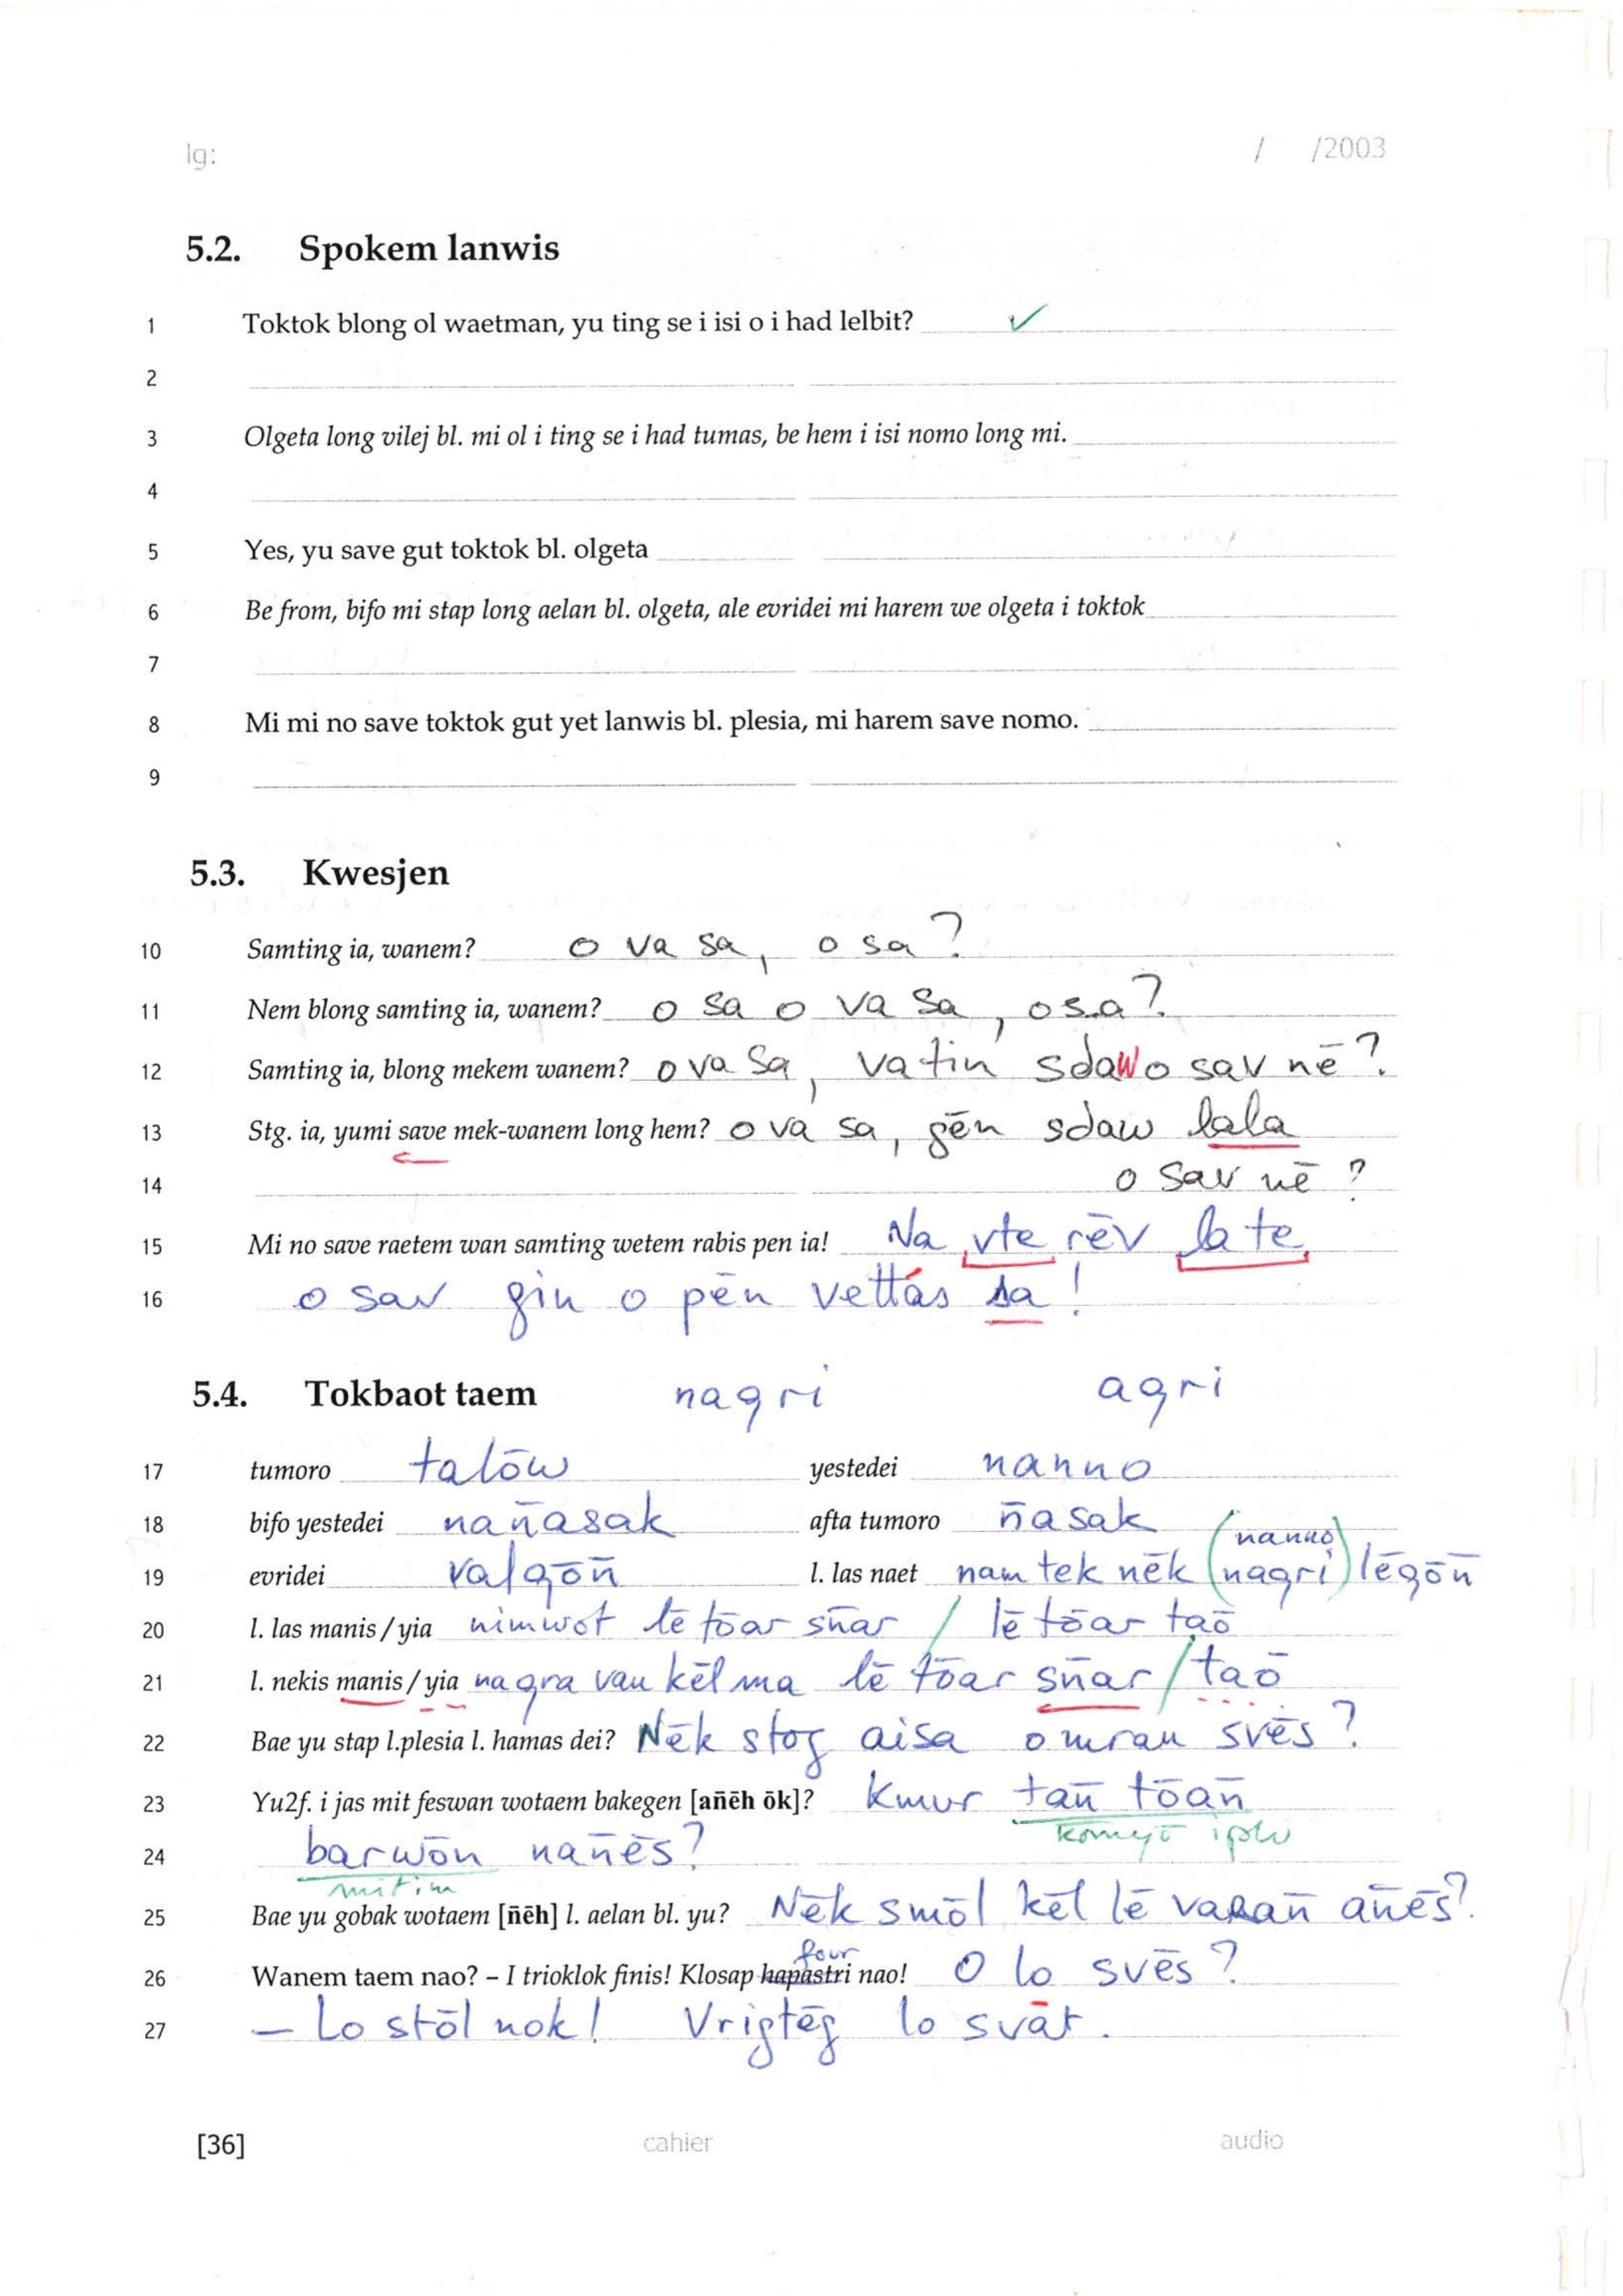 lg: / /2003
5.2. Spokem lanwis
1 Toktok blong ol waetman, yu ting se i isi o i had lelbit? ✓
2
3 Olgeta long vilej bl. mi ol i ting se i had tumas, be hem i isi nomo long mi.
4
5 Yes, yu save gut toktok bl. olgeta
6 Be from, bifo mi stap long aelan bl. olgeta, ale evridei mi harem we olgeta i toktok
7
8 Mi mi no save toktok gut yet lanwis bl. plesia, mi harem save nomo.
9
5.3. Kwesjen
10 Samting ia, wanem? o va sa, o sa?
11 Nem blong samting ia, wanem? o sa o va sa, o sa?
12 Samting ia, blong mekem wanem? o va sa, vatin sdawo sav nē?
13 Stg. ia, yumi save mek-wanem long hem? o va sa, gēn sdaw lala
14 o sav nē?
15 Mi no save raetem wan samting wetem rabis pen ia! Na vte rēv la te
16 o sav gin o pēn vettás sa!
5.4. Tokbaot taem naqri aqri
17 tumoro talōw yestedei nanno
18 bifo yestedei nan̄asak afta tumoro n̄asak
(nanno)
19 evridei valqōn̄ l. las naet nam tek nēk (naqri) lēqōn̄
20 l. las manis / yia nimwot lē tōar sn̄ar / lē tōar taō
21 l. nekis manis / yia naqra van kēl ma lē tōar sn̄ar / taō
22 Bae yu stap l.plesia l. hamas dei? Nēk stog aisa o mran svēs?
23 Yu2f. i jas mit feswan wotaem bakegen [an̄ēh ōk]? Kmur tan̄ tōan̄
24 barwōn nan̄ēs?
mitim
25 Bae yu gobak wotaem [n̄ēh] l. aelan bl. yu? Nēk smōl kēl lē varan̄ an̄ēs?
four
26 Wanem taem nao? – I trioklok finis! Klosap hapastri nao! O lo svēs?
27 – Lo stōl nok! Vrigtēg lo svāt.
[36] cahier audio